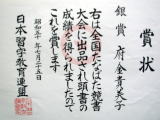 賞状
銀賞 府金青天子
右は全国たなばた競書
大会に出品され頭書の
成績を得られましたので
これを賞します
昭和五十年七月二十五日
日本習字教育連盟